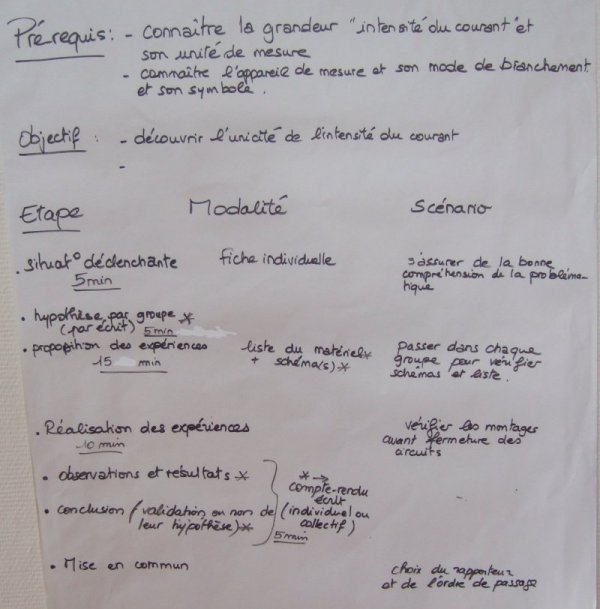 Prérequis : - connaître la grandeur "intensité du courant" et
son unité de mesure
- connaître l'appareil de mesure et son mode de branchement
et son symbole.
Objectif : - découvrir l'unicité de l'intensité du courant
-
Etape Modalité Scénario
. situat° déclenchante fiche individuelle s'assurer de la bonne
5min compréhension de la probléma-
tique
. hypothèse par groupe *
(par écrit) 5 min
. proposition des expériences liste du matériel * passer dans chaque
15 min + schéma(s) * groupe pour vérifier
schémas et liste.
. Réalisation des expériences vérifier les montages
10 min avant fermeture des
circuits
. observations et résultats * * →
compte-rendu
écrit
. conclusion (validation ou non de (individuel ou
leur hypothèse) * collectif)
5min
. Mise en commun choix du rapporteur
et de l'ordre de passage